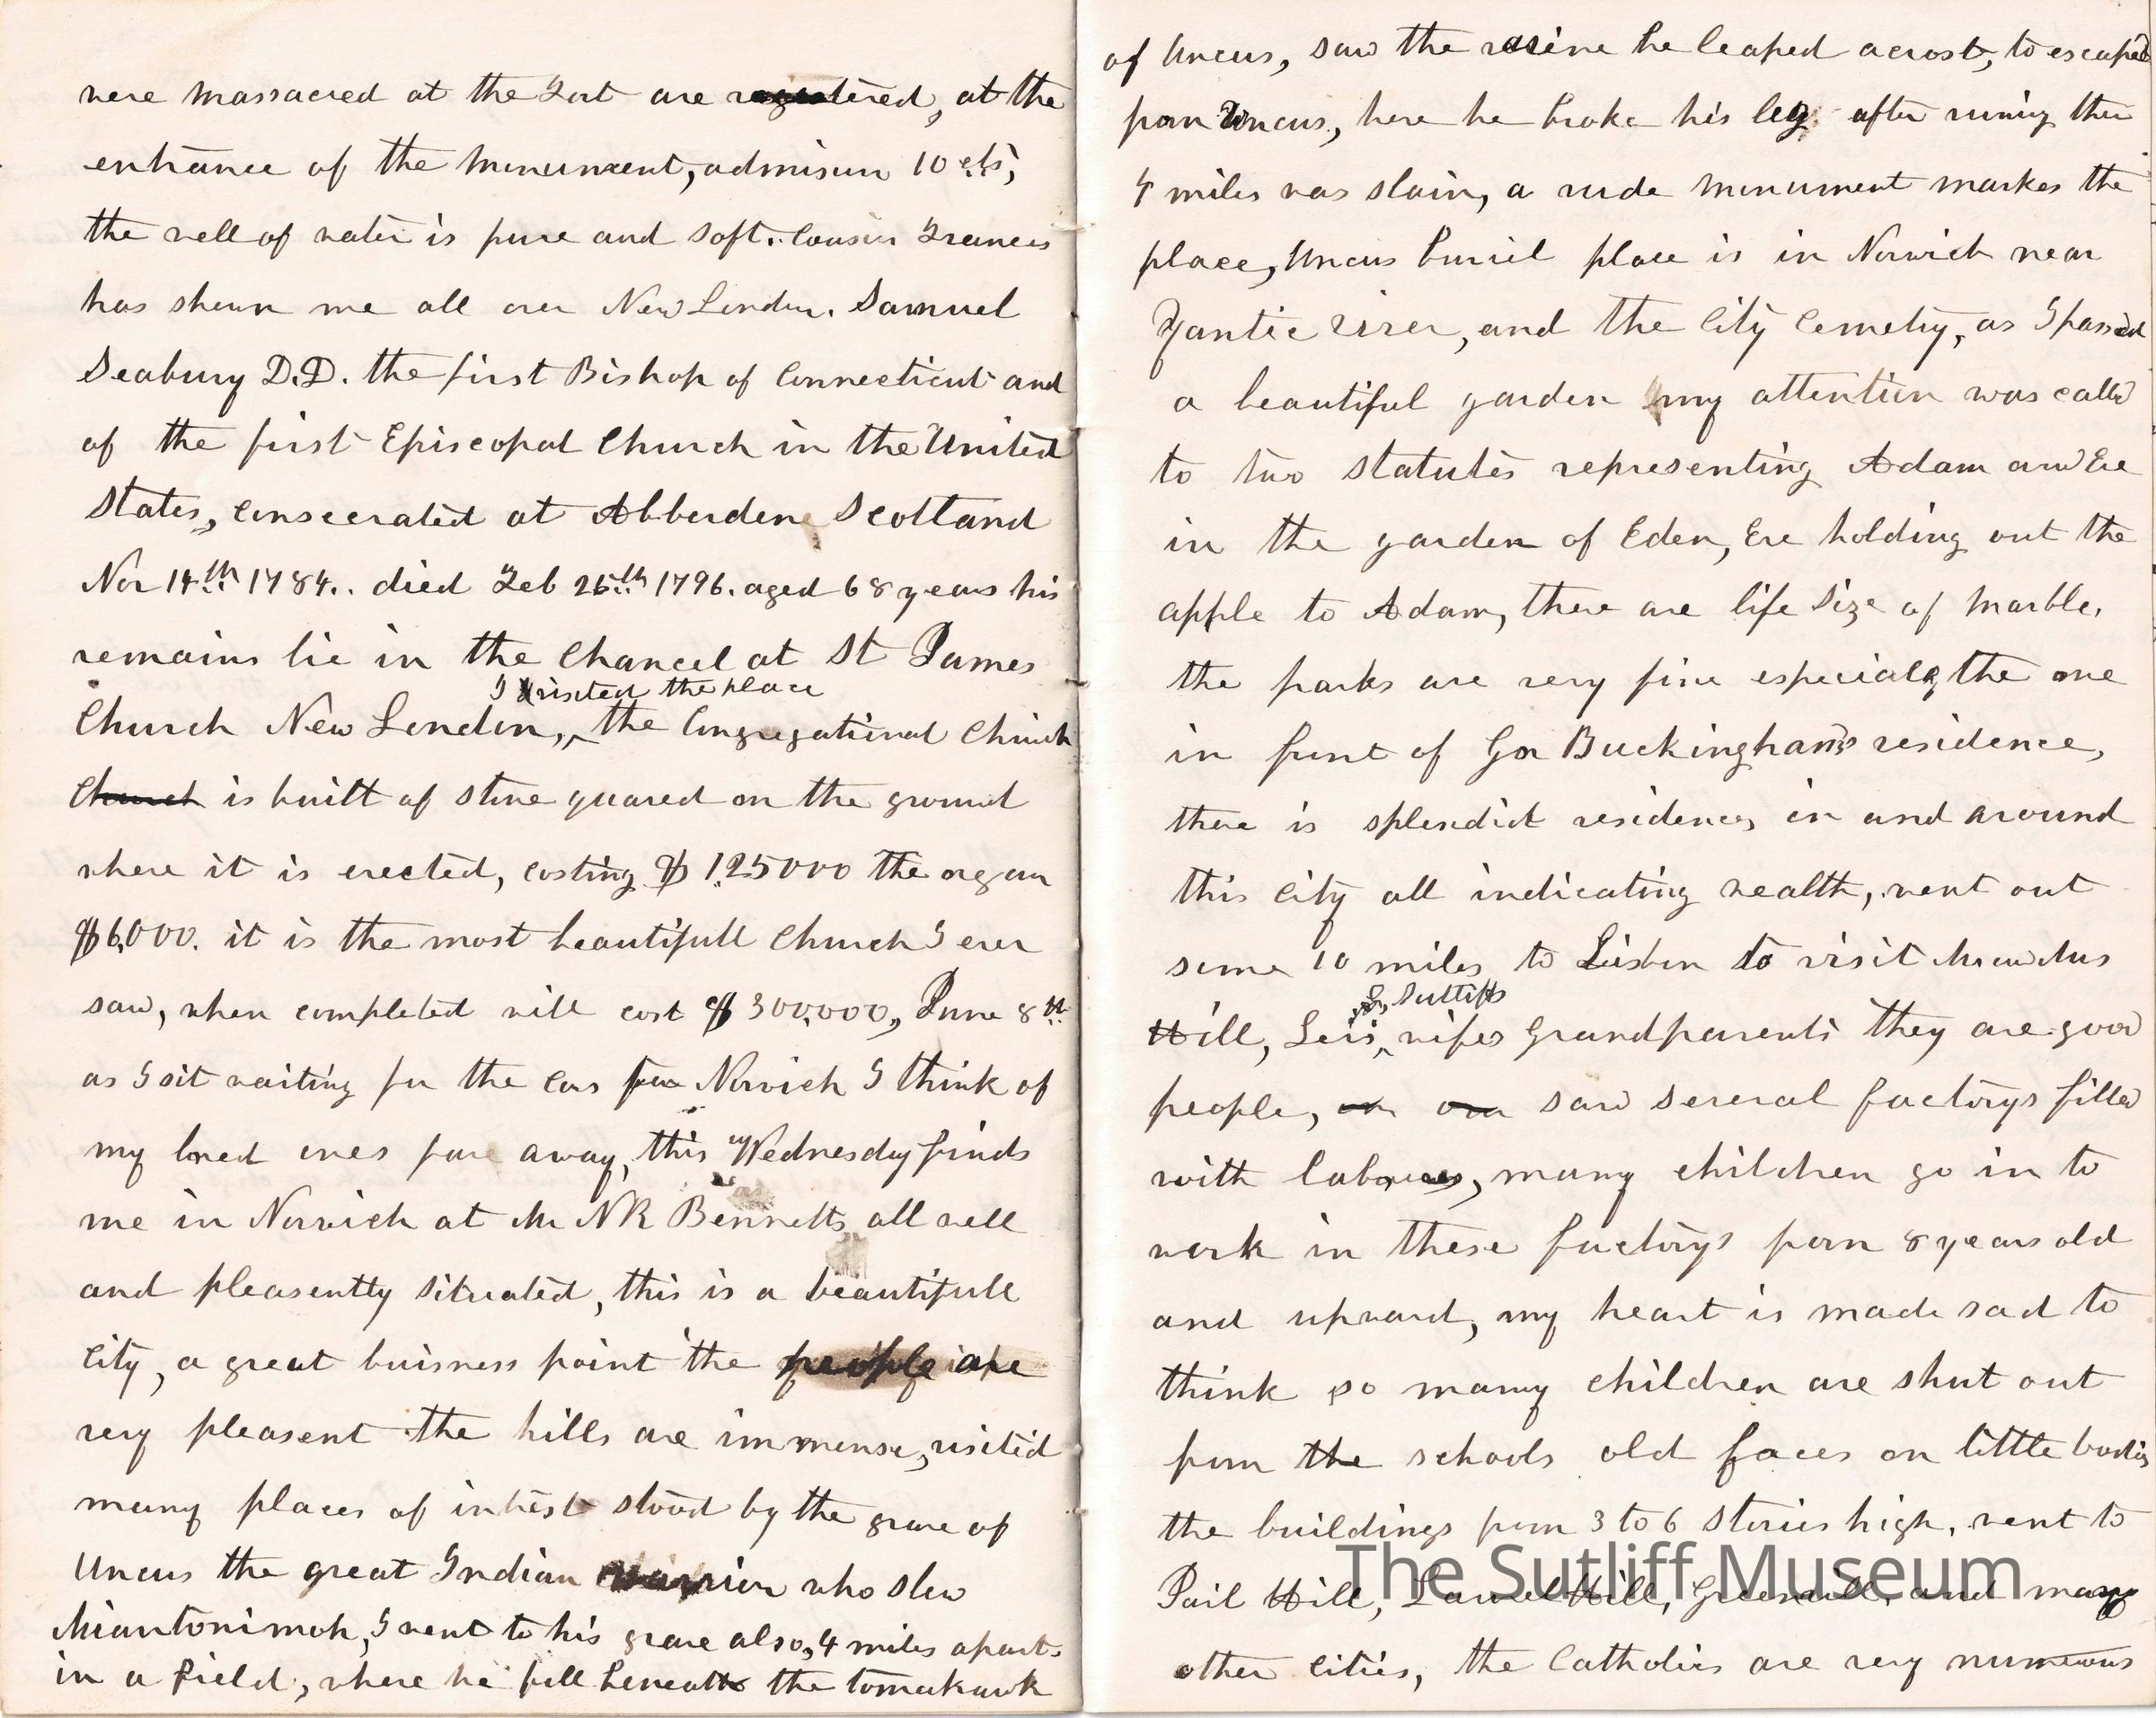 were massacred at the Fort are registered, at the
entrance of the Monument, admisun 10 cts,
the well of water is pure and soft. Cousin Frances
has shown me all over New London. Samuel
Seabury D.D. the first Bishop of Connecticut and
of the first Episcopal Church in the United
States, consecrated at Abberdene Scottand
Nov 14th 1784.. died Feb 25th 1796. aged 68 years his
remains lie in the Chancel at St James
I visited the place
Church New London, the Congregational Church
Church is built of stone quared on the ground
where it is erected, costing $125000 the organ
$6,000. it is the most beautifull Church I ever
saw, when completed will cost $300,000, June 8th
as I sit waiting for the cars for Norwich I think of
my loved ones fare away, this Wednesday finds
me in Norwich at Mr N R Bennetts, all well
and pleasently situated, this is a beautifull
City, a great buisness point the people are
very pleasent the hills are immense, visited
many places of intrest stood by the grave of
Uncus the great Indian warrior who slew
Miantonimoh, I went to his grave also, 4 miles apart.
in a field, where he fell beneath the tomahawk
of Uncus, saw the ravine he leaped acrost, to escaped
from Uncus, here he broke his leg after runing then
4 miles was slain, a rude monument markes the
place, Uncus buriel place is in Norwich near
Yantic river, and the City Cemetry, as I passed
a beautiful garden my attention was called
to two statutes representing Adam and Eve
in the garden of Eden, Eve holding out the
apple to Adam, there are life size of marble.
the parks are very fine especialy the one
in front of Gov Buckingham's residence,
there is splendid residences in and around
this City all indicating wealth, went out
some 10 miles to Lisbon to visit Mr and Mrs
S, Sutliffs
Hill, Levi, wifes Grandparents they are good
people, saw several factorys filled
with laborers, many children go in to
work in these factorys from 8 years old
and upward, my heart is made sad to
think so many children are shut out
from the schools old faces on little bodies
the buildings from 3 to 6 stories high, went to
Pail Hill, Laurel Hill, Greenvill, and many
other Cities, the Catholics are very numerous
The Sutliff Museum